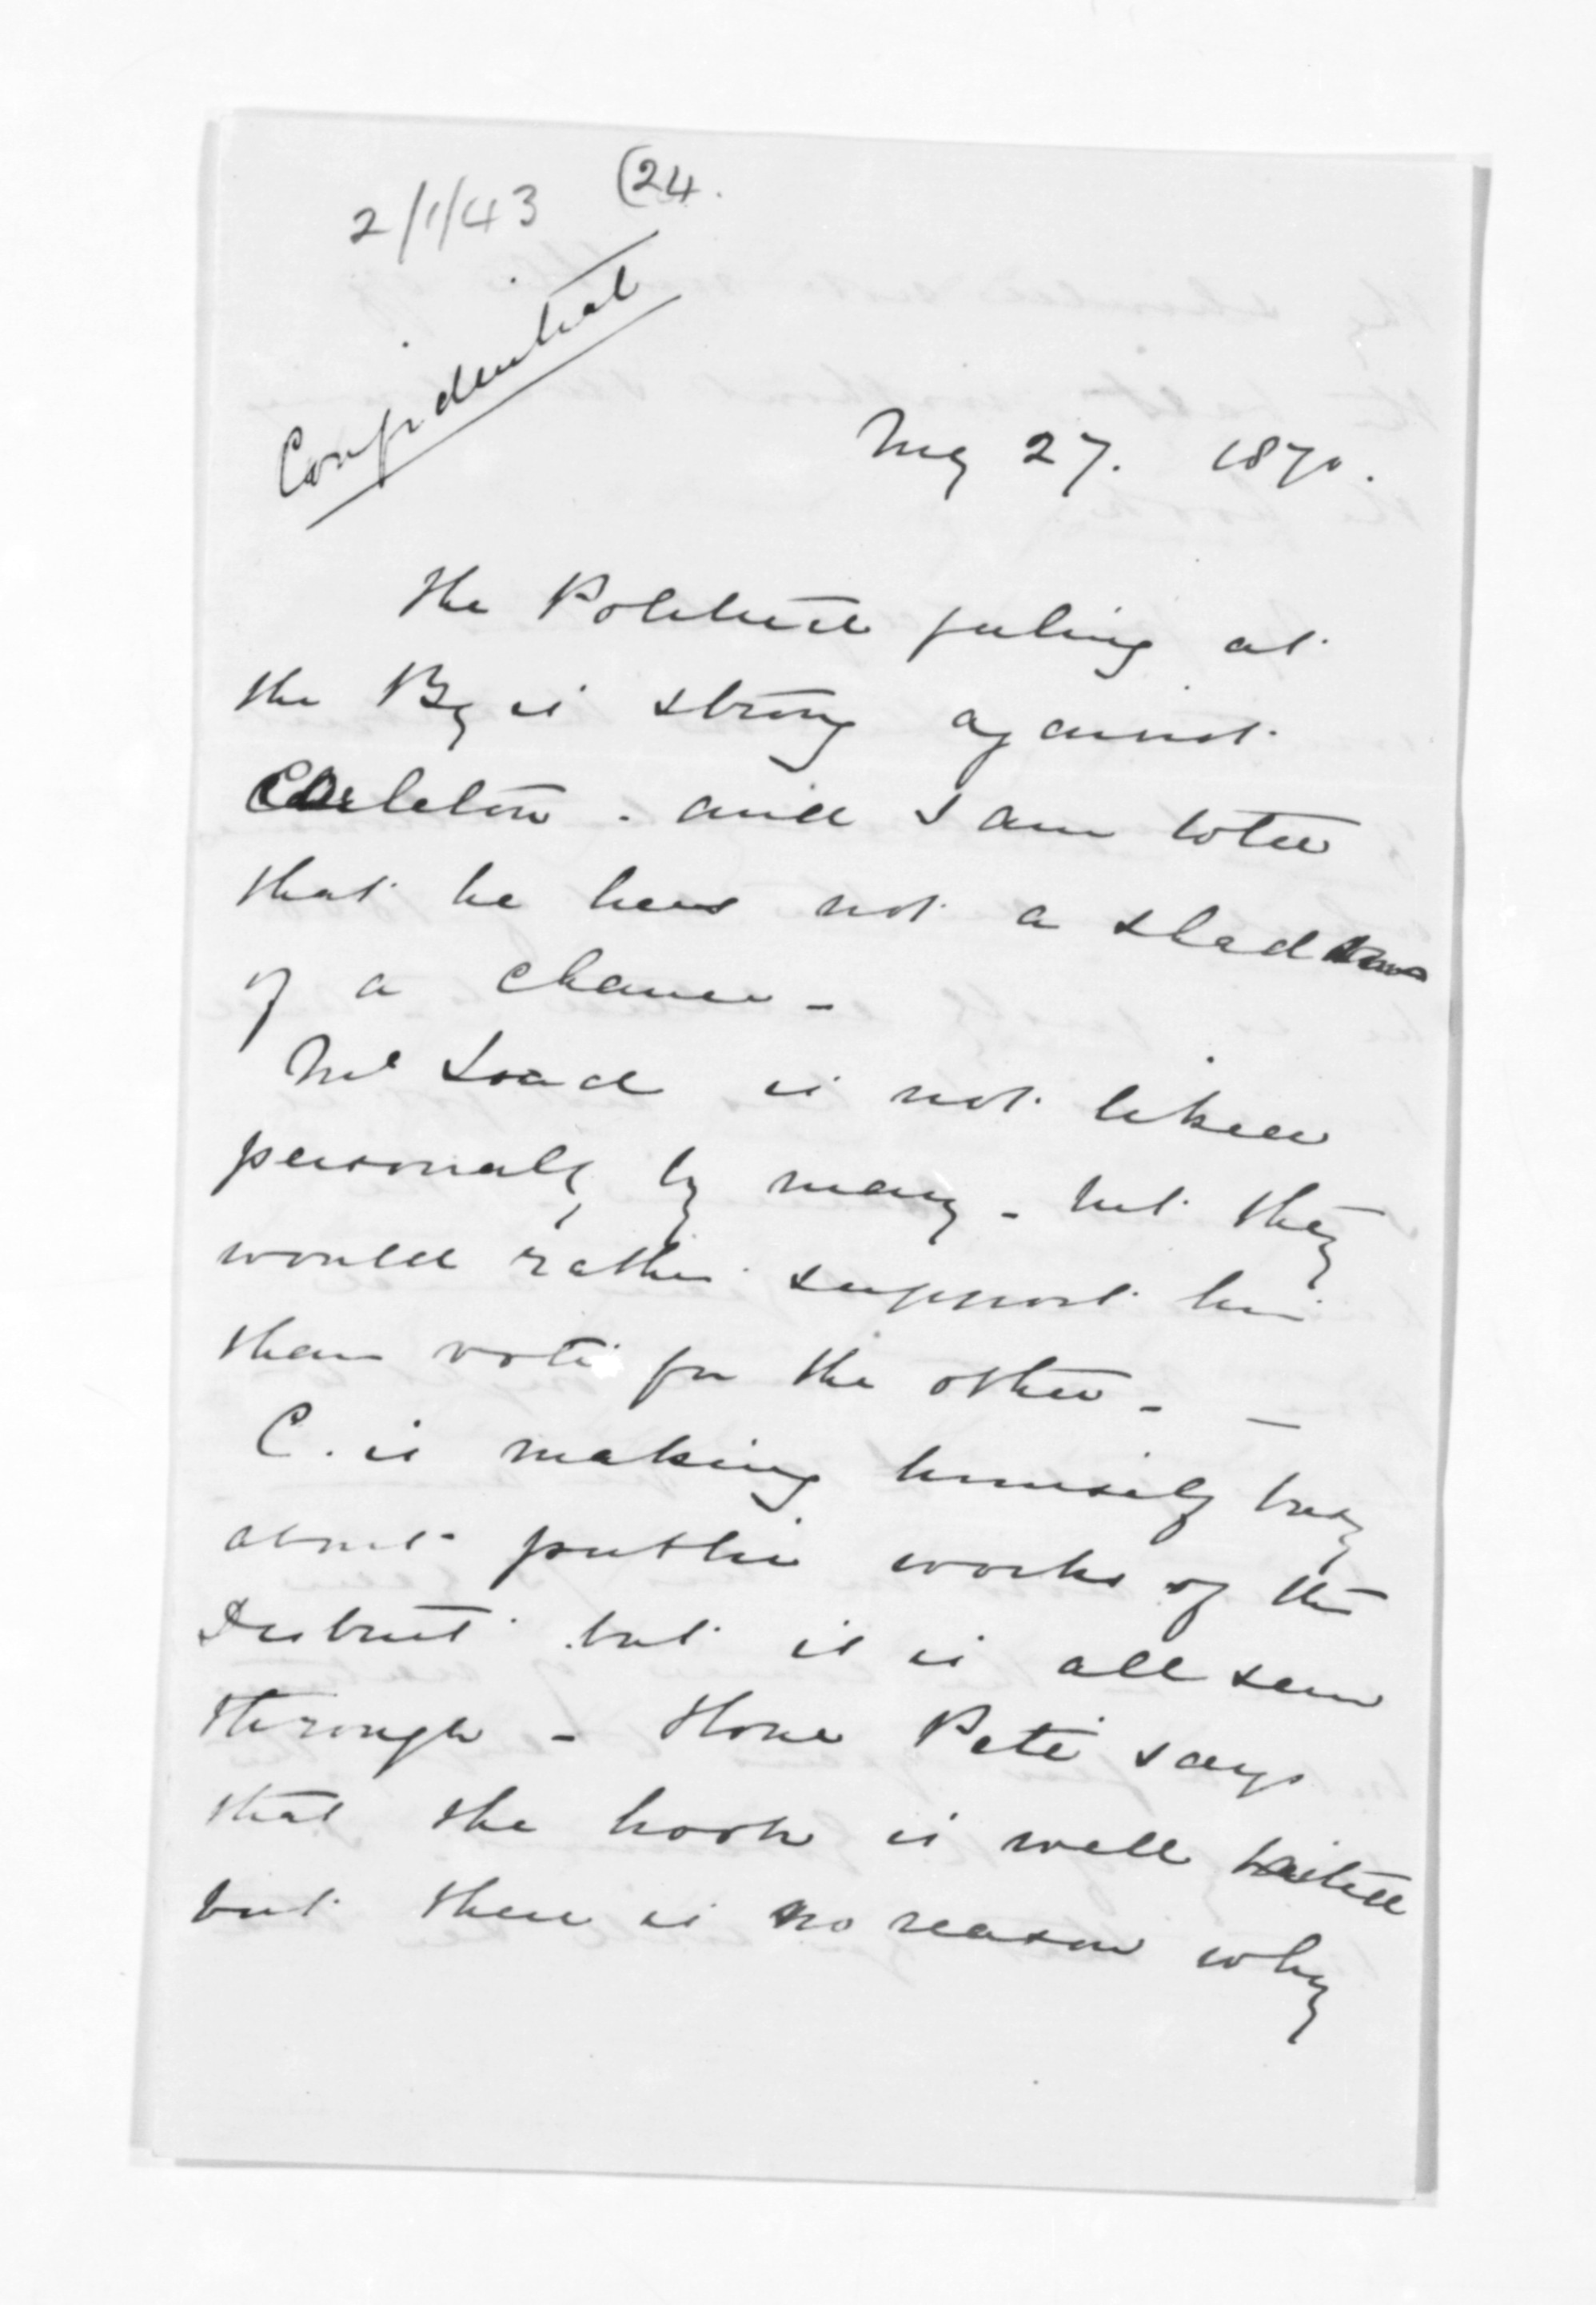 2/1/43 (24.
Confidential
May 27. 1870.
The Political feeling at
the Bay is strong against
Carleton. and I am told
that he has not a shadow
of a chance -
McLeod is not liked
personally by many - but they
would rather support him
than vote for the other - -
C. is making himself busy
about public works of the
District but it is all seen
through - Hone Pete says
that the hook is well baited
but there is no reason why